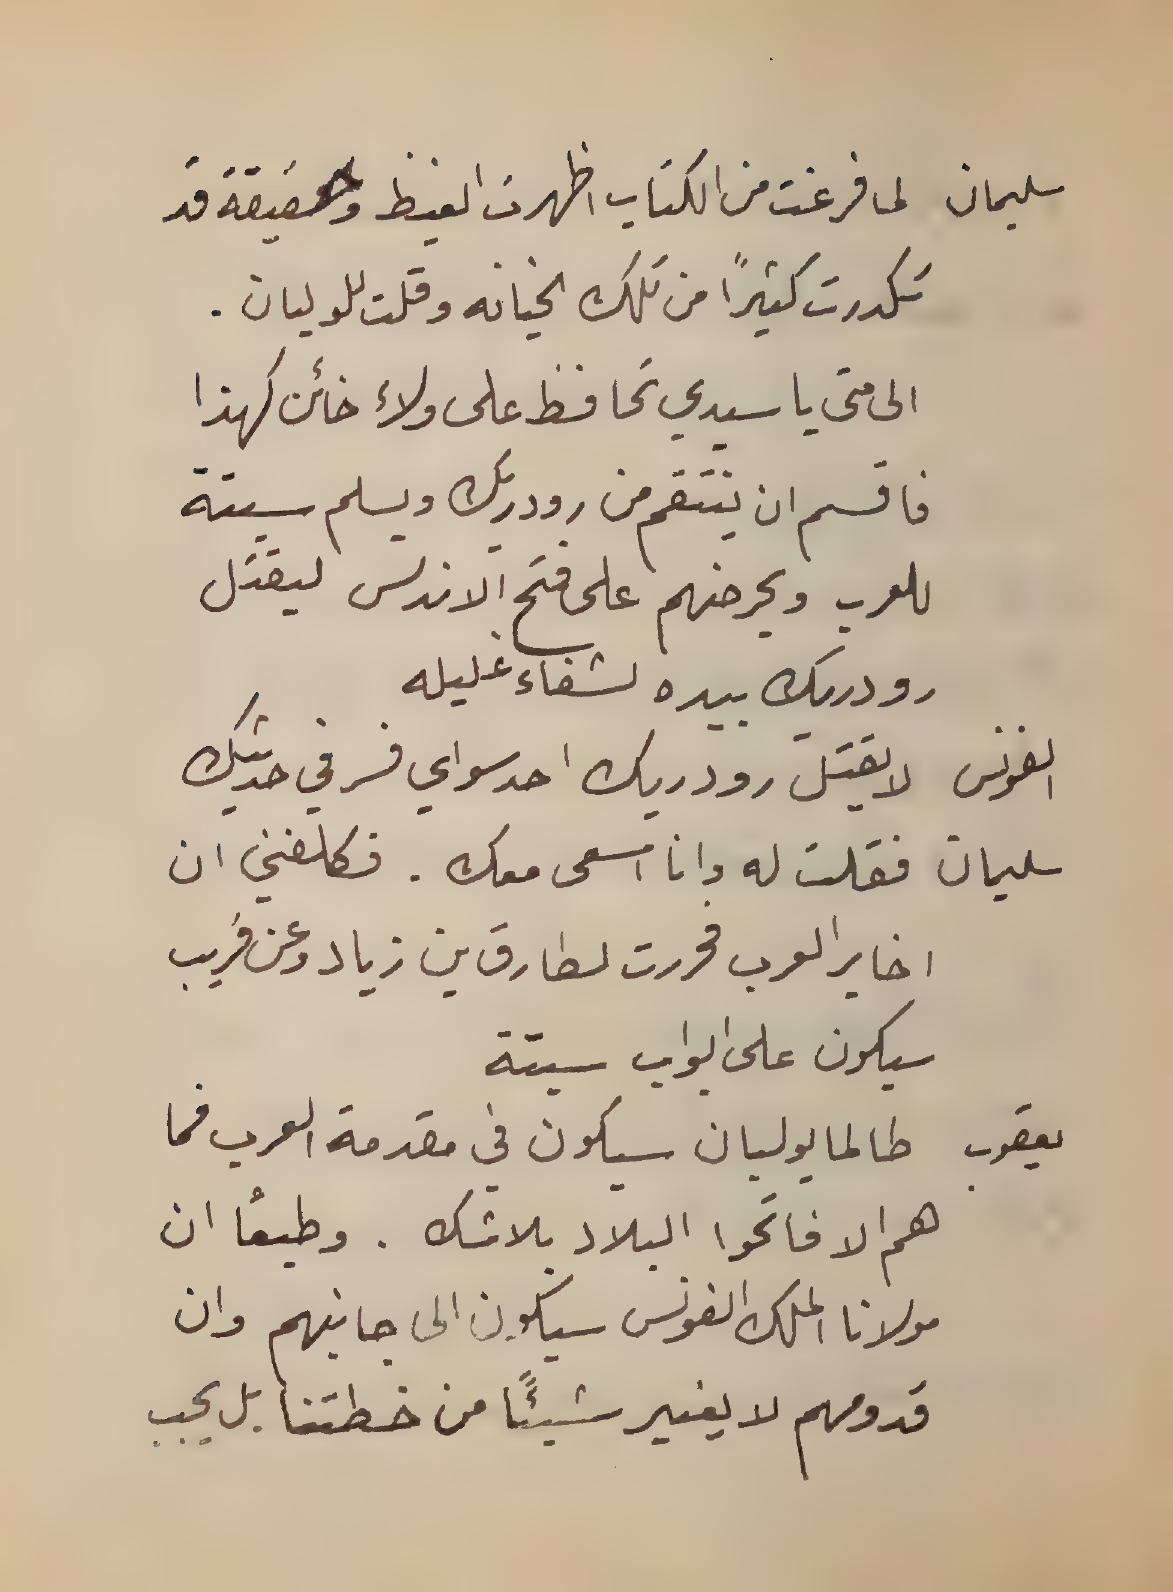 سليمان لما فرغت من الكتاب اظهرت الغيظ وحقيقة قد
تكدرت كثيرًا من تلك الخيانه وقلت لليوليان .
الى متى يا سيدي تحافظ على ولاء خائن كهذا
فاقسم ان ينتقم من رودريك ويسلم سبتة
للعرب ويحرضهم على فتح الاندلس ليقتل
رودريك بيده لشفاء غليله
الفونس لا يقتل رودريك احد سواي فسر في حديثك
سليمان فقلت له وانا اسعى معك . فكلفني ان
اخابر العرب فحررت لطارق بن زياد وعن قريب
سيكون على ابواب سبتة
يعقوب طالما يوليان سيكون في مقدمة العرب فما
هم الا فاتحوا البلاد بلا شك . وطبعًا ان
مولانا الملك الفونس سيكون الى جانبهم وان
قدومهم لا يغير شيئًا من خطتنا بل يجب